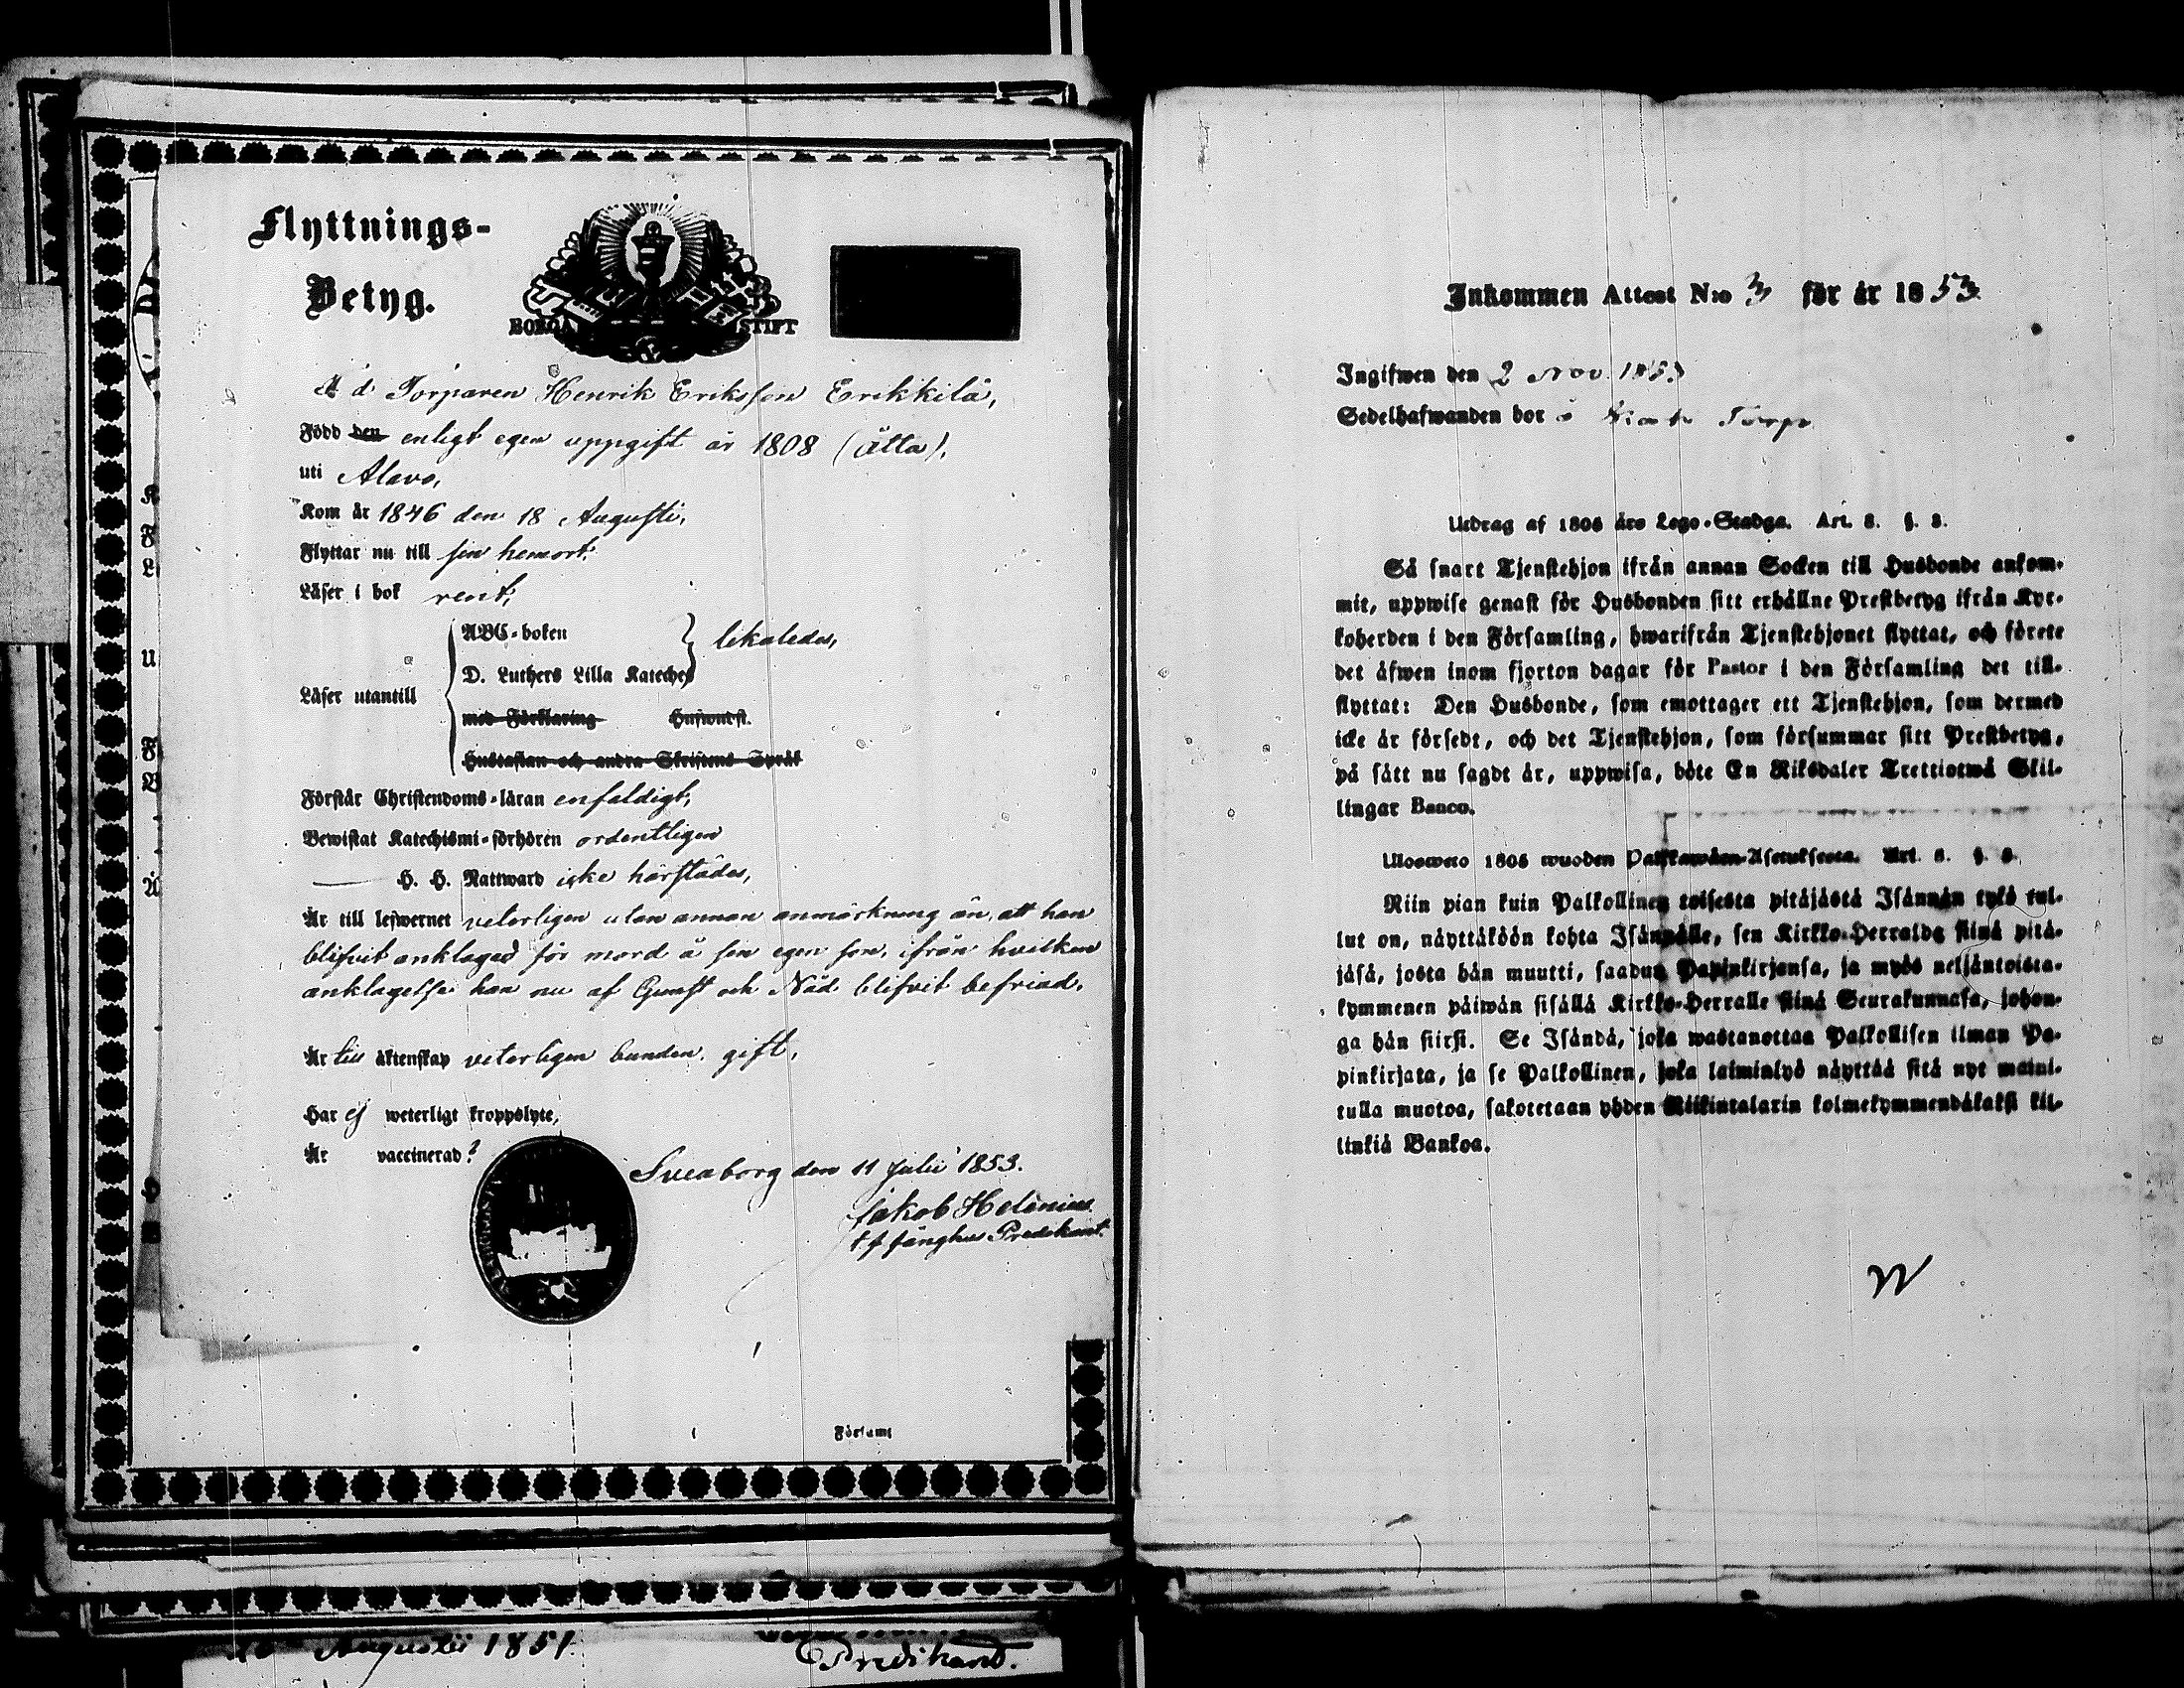 Flyttnings-
Betyg.
BORGÅ STIFT
F d Torparen Henrik Eriksson Erikkilä,
Född den enligt egen uppgift år 1808 (åtta),
uti Alavo,
Kom år 1846 den 18 Augusti,
Flyttar nu till sin hemort,
Läser i bok rent,
Läser utantill
ABC-boken
D. Luthers Lilla Kateches
likaledes,
med Förklaring Hufwudst.
Hustaflan och andra Skriftens Språk
Förstår Christendoms-läran enfaldigt,
Bewistat Katechismi-förhören ordentligen
H. H. Nattward icke härstädes,
Är till lefwernet veterligen utan annan anmärkning än, att han
blifvit anklagad för mord å sin egen son, ifrån hvilken
anklagelse han nu af Gunst och Nåd blifvit befriad,
Är till äktenskap veterligen bunden, gift,
Har ej weterligt kroppslyte,
Är vaccinerad?
Sveaborg den 11 Julii 1853.
Jakob Helenius
t f fånghus Predikant.
Församl
Augusti 1851.
Predikand.
Inkommen Attest N:o 3 för år 1853
Ingifwen den 2 Nov. 1853
Sedelhafwanden bor å Torp
Utdrag af 1805 års Lego-Stadga. Art. 8. §. 8.
Så snart Tjenstehjon ifrån annan Socken till Husbonde ankom-
mit, uppwise genast för Husbonden sitt erhållne Prestbetyg ifrån Kyr-
koherden i den Församling, hwarifrån Tjenstehjonet flyttat, och förete
det åfwen inom fjorton dagar för Pastor i den Församling det till-
flyttat: Den Husbonde, som emottager ett Tjenstehjon, som dermed
icke är försedt, och det Tjenstehjon, som försummar sitt Prestbetyg,
på sått nu sagdt är, uppwisa, böte En Riksdaler Trettiotwå Skil-
lingar Banco.
Ulosweto 1805 wuoden Palkawäen-Asetuksesta. Art. 8. §. 8.
Niin pian kuin Palkollinen toisesta pitäjästä Isännän tykö tul-
lut on, näyttäköön kohta Isännälle, sen Kirkko-Herralda siinä pitä-
jäsä, josta hän muutti, saadun Papinkirjansa, ja myös neljäntoista-
kymmenen päiwän sisällä Kirkko-Herralle siinä Seurakunnasa, johon-
ga hän siirsi. Se Isändä, joka wastanottaa Palkollisen ilman Pa-
pinkirjata, ja se Palkollinen, joka laiminlyö näyttää sitä nyt maini-
tulla muotoa, sakotetaan yhden Riikintalarin kolmekymmendäkaksi kil-
linkiä Bankoa.